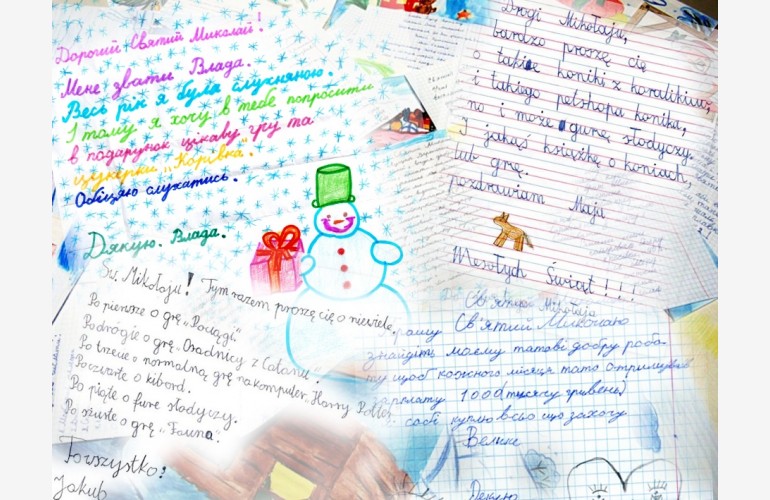 Дорогий Святий Миколай!
Мене звати Влада.
Весь рік я була слухняною.
І тому я хочу в тебе попросити
в подарунок цікаву гру та
цукерки "Корівка".
Обіцяю слухатись.
Дякую. Влада.
Drogi Mikołaju,
bardzo proszę cię
o takie koniki z koralikiów,
i takiego petshopa konika,
no i może górę słodyczy.
I jakąś książkę o koniach,
lub grę.
pozdrawiam Maja
Wesołych Świąt!!!
Św. Mikołaju! Tym razem proszę cię o niewiele,
Po pierwsze o grę „Pociągi".
Po drógie o grę „Osadnicy z Catanu".
Po trzecie o normalną grę na komputer „Harry Potter
Po czwarte o kibord.
Po piąte o furę słodyczy.
Po szuste o grę "Fauna".
To wszystko!
Jakub
Св'ятий Миколаю
знайдіть моєму татові добру робо-
ту щоб кожного місяця тато отримував
зарплату 1000 (тисячу гривень)
собі куплю всьо що захочу
Велике
Дякую